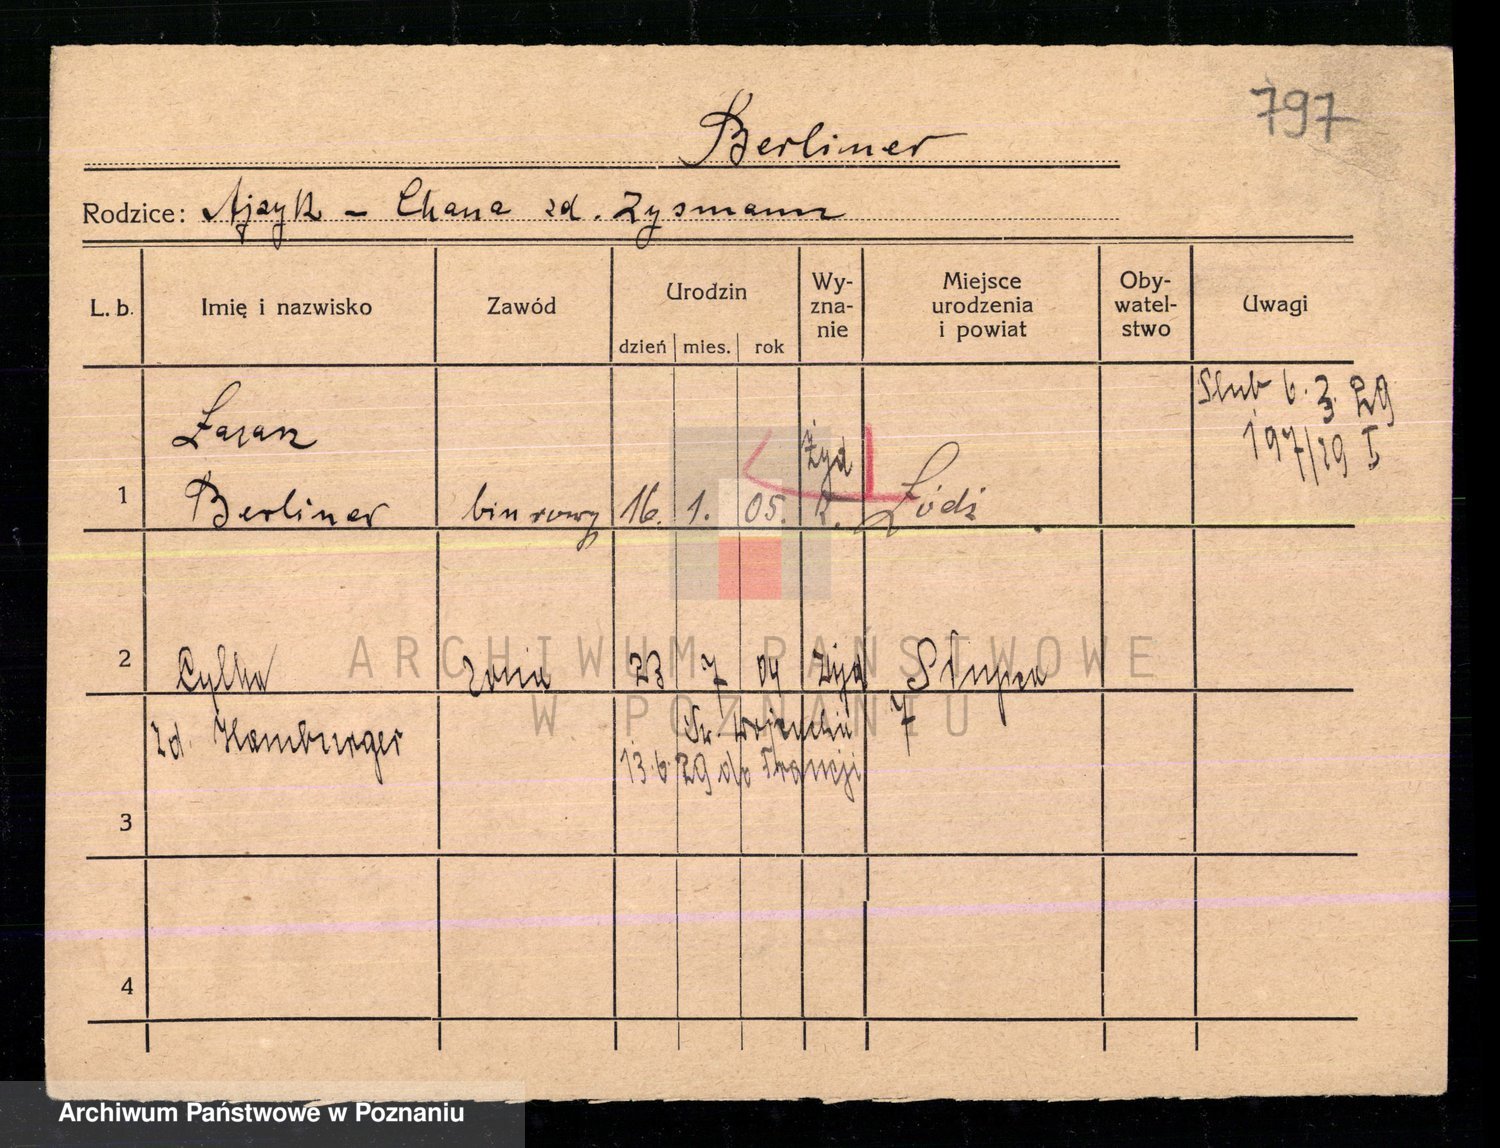 797
Berliner
Rodzice: Ajzyk - Chana zd. Zysmann
L. b.
Imię i nazwisko
Zawód
Urodzin
dzień mies. rok
Wy-
zna-
nie
Miejsce
urodzenia
i powiat
Oby-
watel-
stwo
Uwagi
Ślub 6. 3. 29
197/29 I
1
Łazarz
Berliner
biurowy 16. 1. 05. Żyd Łódź
2 Cylka żona 23 7 09 żyd Słupca
zd. Hamburger
13.6.29 do Francji
3
4
ARCHIWUM PAŃSTWOWE
W POZNANIU
Archiwum Państwowe w Poznaniu